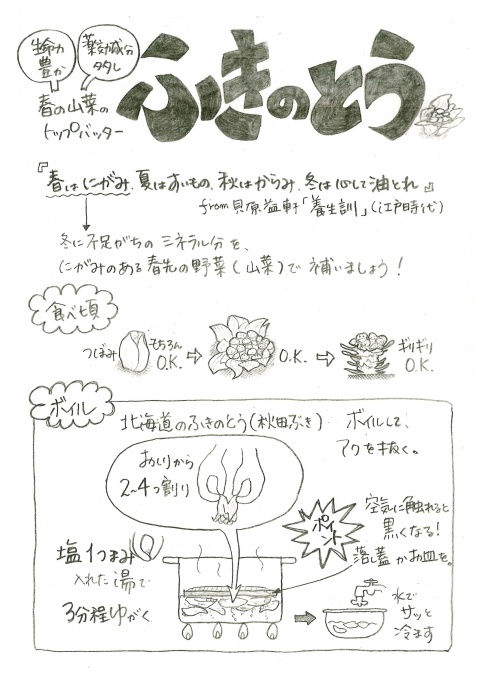 生命力
豊か
薬効成分
多し
春の山菜の
トップバッター
ふきのとう
『春はにがみ、夏はすいもの、秋はからみ、冬は心して油とれ』
from 貝原益軒「養生訓」(江戸時代)
冬に不足がちのミネラル分を、
にがみのある春先の野菜(山菜)で補いましょう!
食べ頃
つぼみ
もちろん
O.K.
O.K.
ギリギリ
O.K.
ボイル
北海道のふきのとう(秋田ぶき)
ボイルして、
アクを抜く。
おしりから
2~4つ割り
ポイント
空気に触れると
黒くなる!
落し蓋かお皿を。
塩1つまみ
入れた湯で
3分程ゆがく
水で
サッと
冷ます